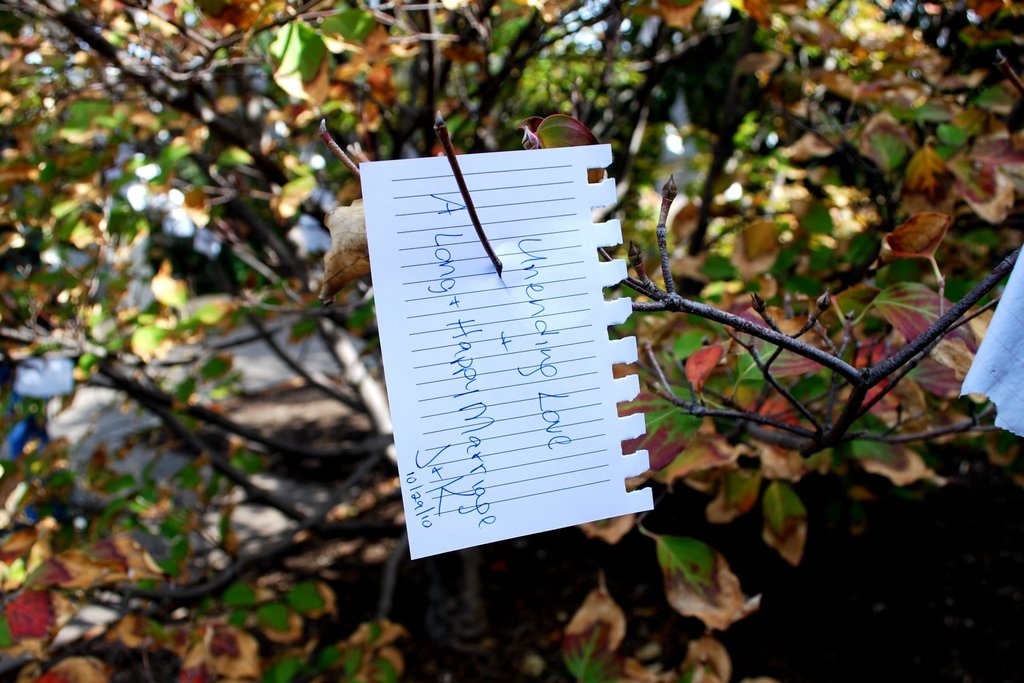 Unending Love
+
A Long + Happy Marriage
J+K
10/29/10